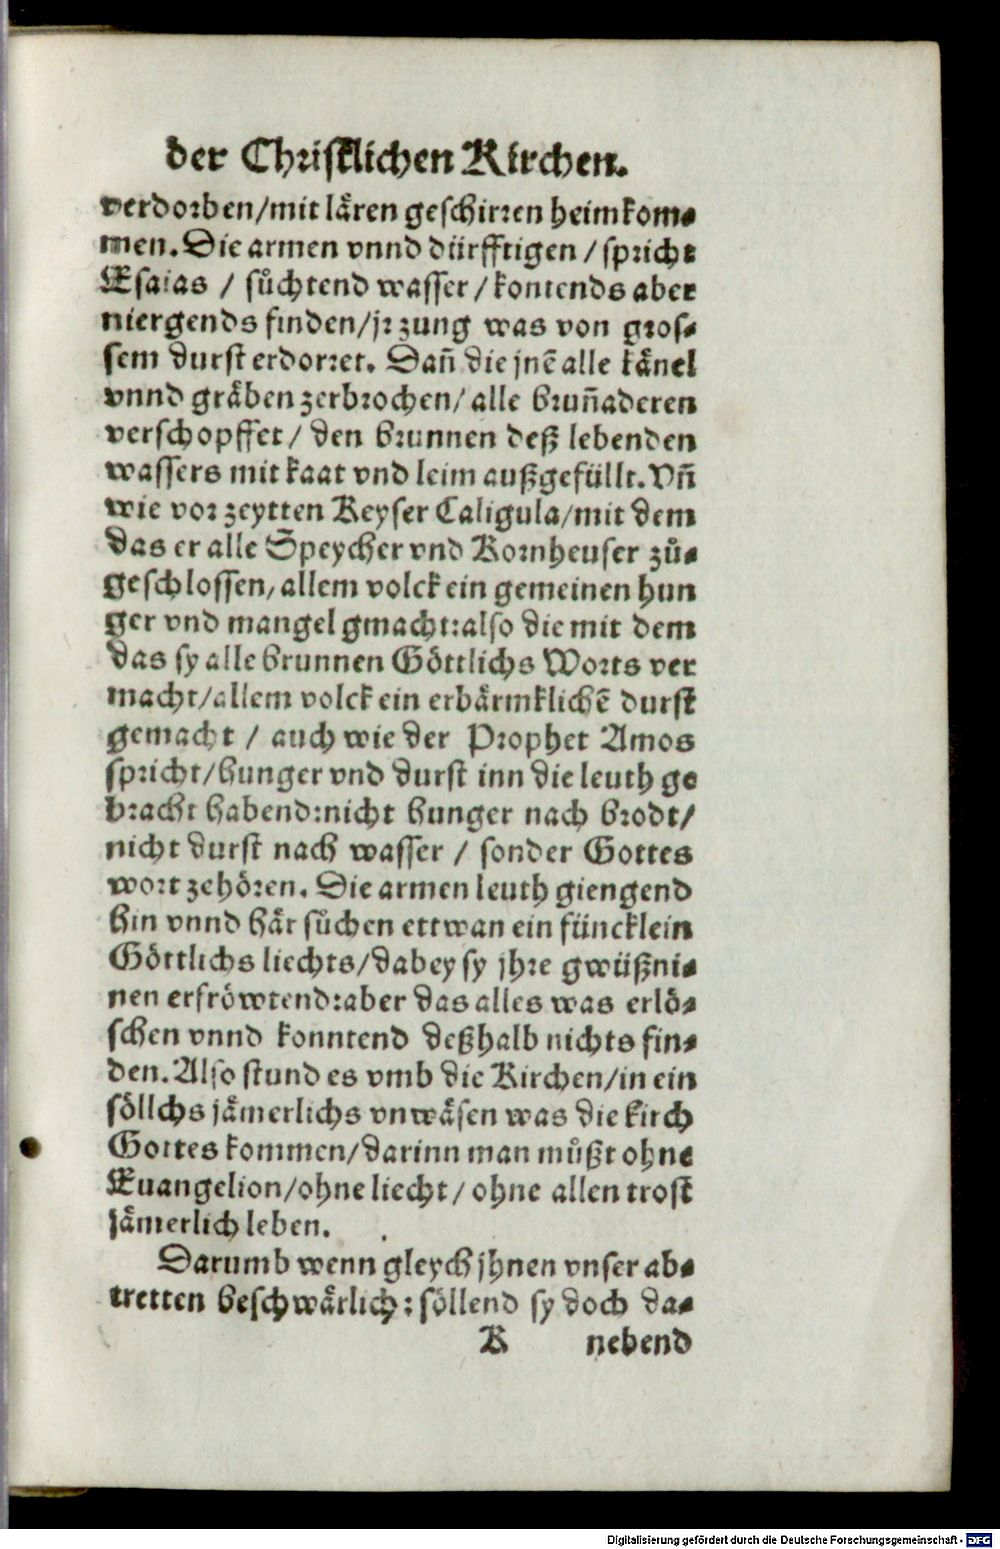 der Christlichen Kirchen.
verdorben/mit lären geschirren heimkom⸗
men. Die armen vnnd dürfftigen / spricht
Esaias / sůchtend wasser / kontends aber
niergends finden/jr zung was von gros⸗
sem durst erdorret. Dañ die jnē alle känel
vnnd gräben zerbrochen/ alle bruñaderen
verschopffet / den brunnen deß lebenden
wassers mit kaat vnd leim außgefüllt. Vñ
wie vor zeytten Keyser Caligula/mit dem
das er alle Speycher vnd Kornheuser zů⸗
geschlossen, allem volck ein gemeinen hun
ger vnd mangel gmacht:also die mit dem
das sy alle brunnen Göttlichs Worts ver
macht/allem volck ein erbärmklichē durst
gemacht / auch wie der Prophet Amos
spricht/hunger vnd durst inn die leuth ge
bracht habend:nicht hunger nach brodt/
nicht durst nach wasser / sonder Gottes
wort zehören. Die armen leuth giengend
hin vnnd här sůchen ettwan ein füncklein
Göttlichs liechts/dabey sy jhre gwüßni⸗
nen erfröwtend:aber das alles was erlö⸗
schen vnnd konntend deßhalb nichts fin⸗
den. Also stund es vmb die Kirchen/in ein
söllchs jämerlichs vnwäsen was die kirch
Gottes kommen/darinn man můßt ohne
Euangelion/ohne liecht/ ohne allen trost
jämerlich leben.
Darumb wenn gleych jhnen vnser ab⸗
tretten beschwärlich: söllend sy doch da⸗
K nebend
Digitalisierung gefördert durch die Deutsche Forschungsgemeinschaft - DFG